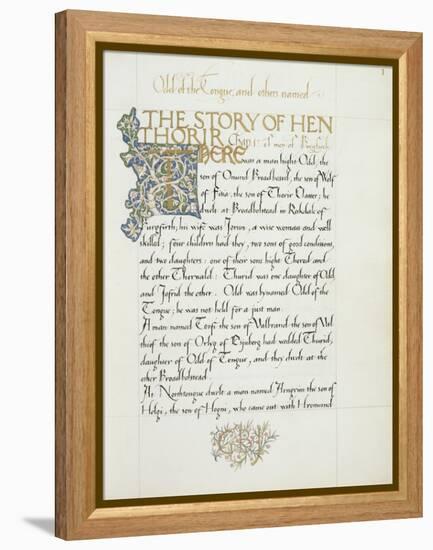 Odd of the Tongue, and others named
1
THE STORY OF HEN
THORIR Chap. I. Of men of Burgfirth
THERE
was a man hight Odd, the
son of Onund Broadbeard, the son of Wolf
of Fitia, the son of Thorir Clatter; he
dwelt at Broadbolstead in Rekdale of
Burgfirth; his wife was Jorun, a wise woman and well
skilled; four children had they, two sons of good conditions,
and two daughters: one of their sons hight Thorod and
the other Thorwald: Thurid was one daughter of Odd,
and Jofrid the other. Odd was bynamed Odd of the
Tongue; he was not held for a just man.
A man named Torfi the son of Valbrand the son of Val
thiof the son of Orlyg of Esjuberg had wedded Thurid,
daughter of Odd of Tongue, and they dwelt at the
other Broadbolstead.
At Northtongue dwelt a man named Arngrim the son of
Helgi, the son of Hogni, who came out with Hromund